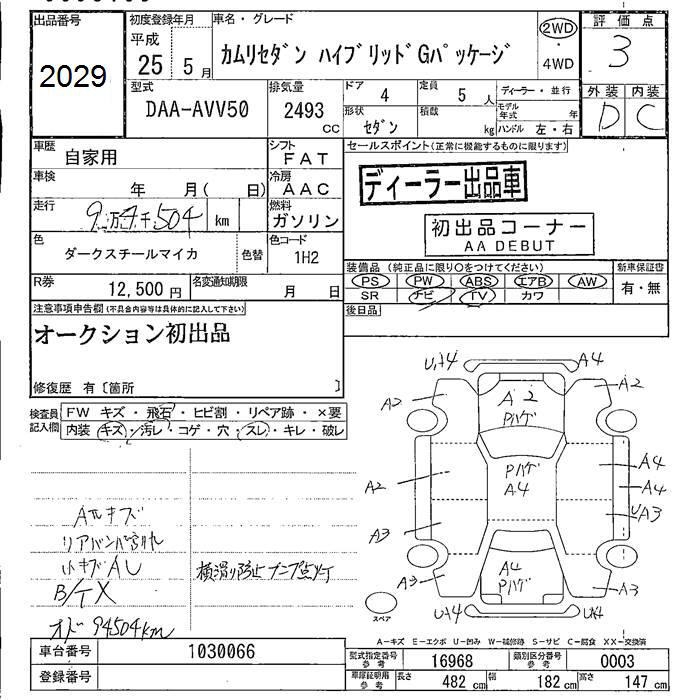 出品番号
2029
初度登録年月
平成
25 5 月
車名・グレード
カムリセダン ハイブリッドGパッケージ
2WD
・
4WD
評価点
3
型式
DAA-AVV50
排気量
2493
CC
ドア
4
定員
5 人
ディーラー・並行
形状
セダン
積載
kg
モデル
年式 年
ハンドル 左・右
外装 内装
D C
車歴
自家用
シフト
FAT
セールスポイント(正常に機能するものに限ります)
車検
年 月( 日)
冷房
AAC
ディーラー出品車
走行
9万4千504 km
燃料
ガソリン
初出品コーナー
AA DEBUT
色
ダークスチールマイカ
色替
色コード
1H2
装備品(純正品に限り○をつけてください)
新車保証書
R券
12,500 円
名変通知期限
月 日
PS PW ABS エアB AW
SR ナビ TV カワ
有・無
注意事項申告欄(不具合内容等は具体的に記入して下さい)
後日品
オークション初出品
修復歴 有〔箇所 〕
検査員
記入欄
FW キズ・飛石・ヒビ割・リペア跡・×要
内装 キズ・汚レ・コゲ・穴・スレ・キレ・破レ
U小4 A4
A2 A2 A2
Pハゲ
Pハゲ
A4
A4
A2 A4
UA3
A3
A4
Pハゲ
A3 A3
U小4 U小4
スペア
Aルキズ
リアバンパ割れ
小キズAU
B/TX
オド 94504km
横滑り防止ランプ点灯
A-キズ E-エクボ U-凹み W-補修跡 S-サビ C-腐食 XX-交換済
車台番号
1030066
型式指定番号
参考
16968
類別区分番号
参考
0003
登録番号
車庫証明用
参考
長さ
482 cm
幅
182 cm
高さ
147 cm